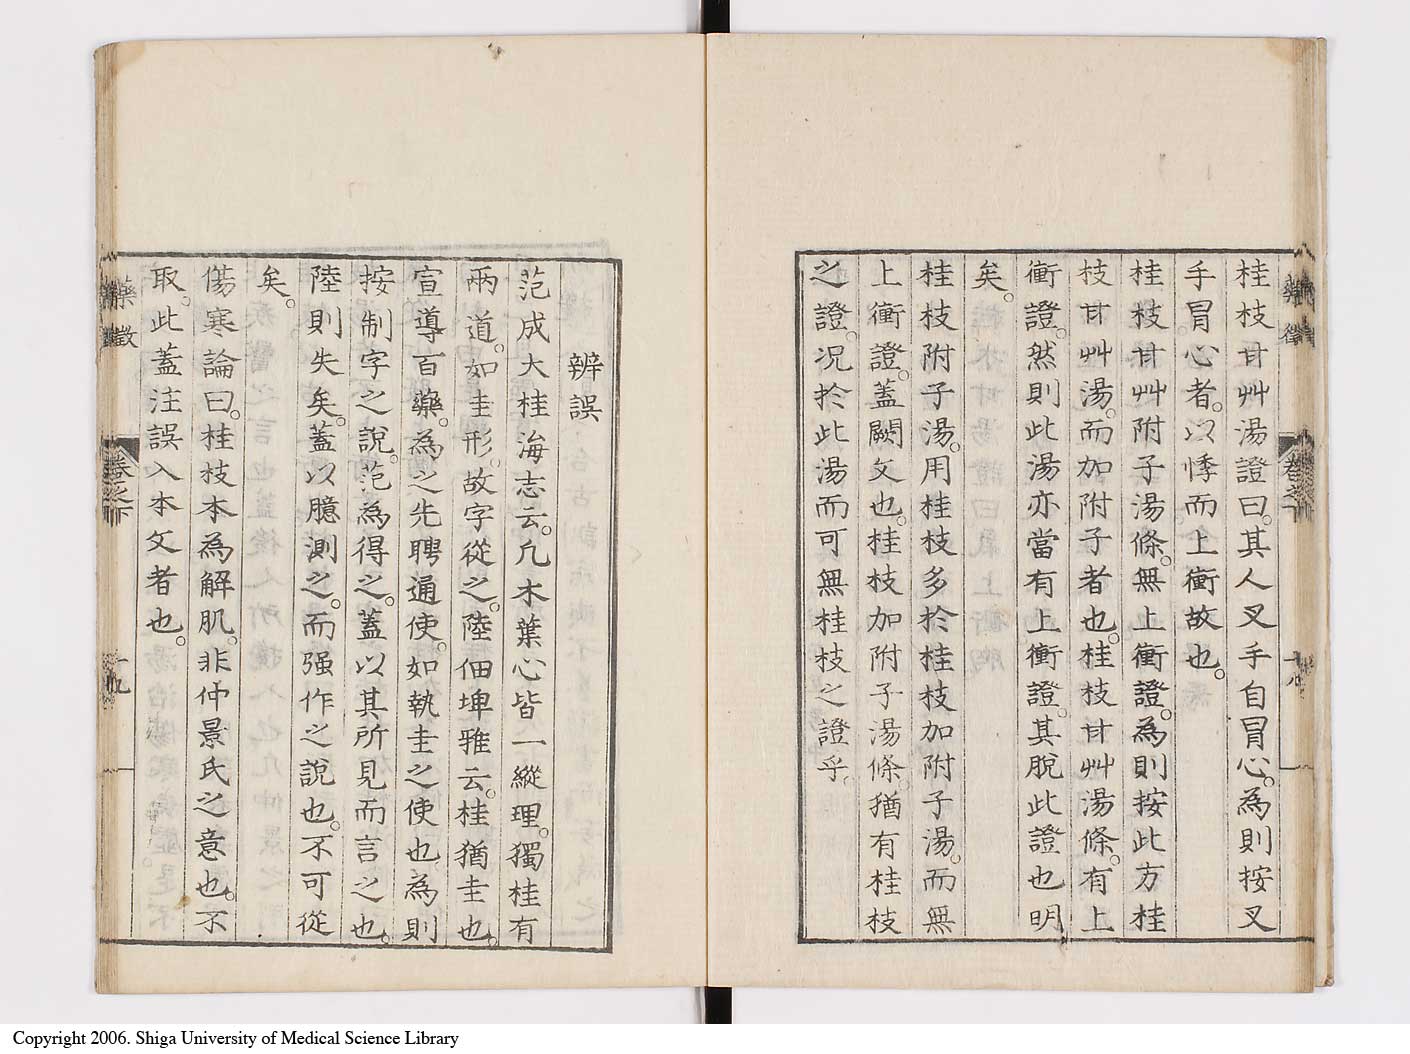 桂枝甘艸湯證曰。其人叉手自冒心。為則按叉
手冒心者。以悸而上衝故也。
桂枝甘艸附子湯條。無上衝證。為則按此方桂
枝甘艸湯。而加附子者也。桂枝甘艸湯條。有上
衝證。然則此湯亦當有上衝證。其脫此證也明
矣。
桂枝附子湯。用桂枝多於桂枝加附子湯。而無
上衝證。蓋闕文也。桂枝加附子湯條。猶有桂枝
之證。况於此湯而可無桂枝之證乎。
辨誤
范成大桂海志云。凡木葉心皆一縱理。獨桂有
兩道。如圭形。故字從之。陸佃埤雅云。桂猶圭也。
宣導百藥。為之先聘通使。如執圭之使也為則
按制字之說。范為得之。蓋以其所見而言之也。
陸則失矣。蓋以臆測之。而强作之說也。不可從
矣。
傷寒論曰。桂枝本為解肌。非仲景氏之意也。不
取。此蓋注誤入本文者也。
藥徵
卷之下
十九
Copyright 2006. Shiga University of Medical Science Library